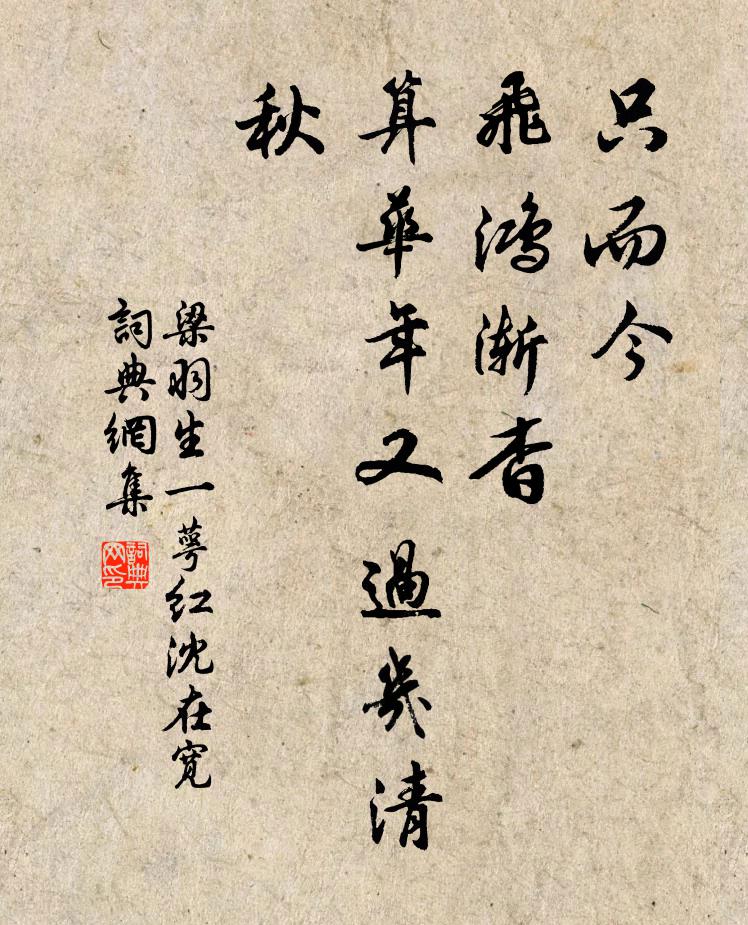 只而今
飛鴻漸杳
算華年又過幾清
秋
梁羽生一萼紅沈在寬
詞典網集
詞典
网印